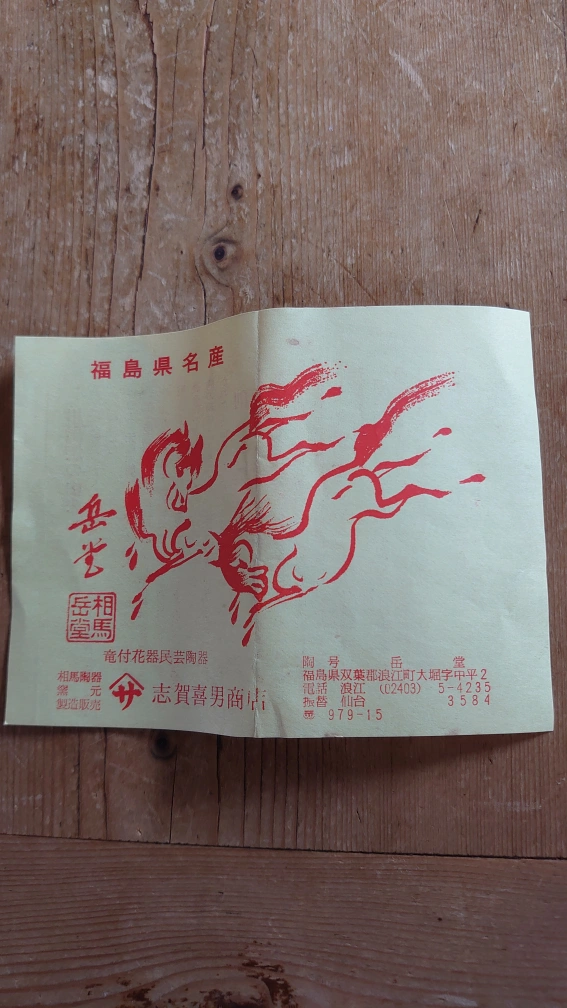 福島県名産
岳堂
相馬
岳堂
竜付花器民芸陶器
相馬陶器
窯元
製造販売
サ
志賀喜男商店
陶号 岳堂
福島県双葉郡浪江町大堀字中平2
電話 浪江 (02403) 5-4235
振替 仙台 3584
〒 979-15